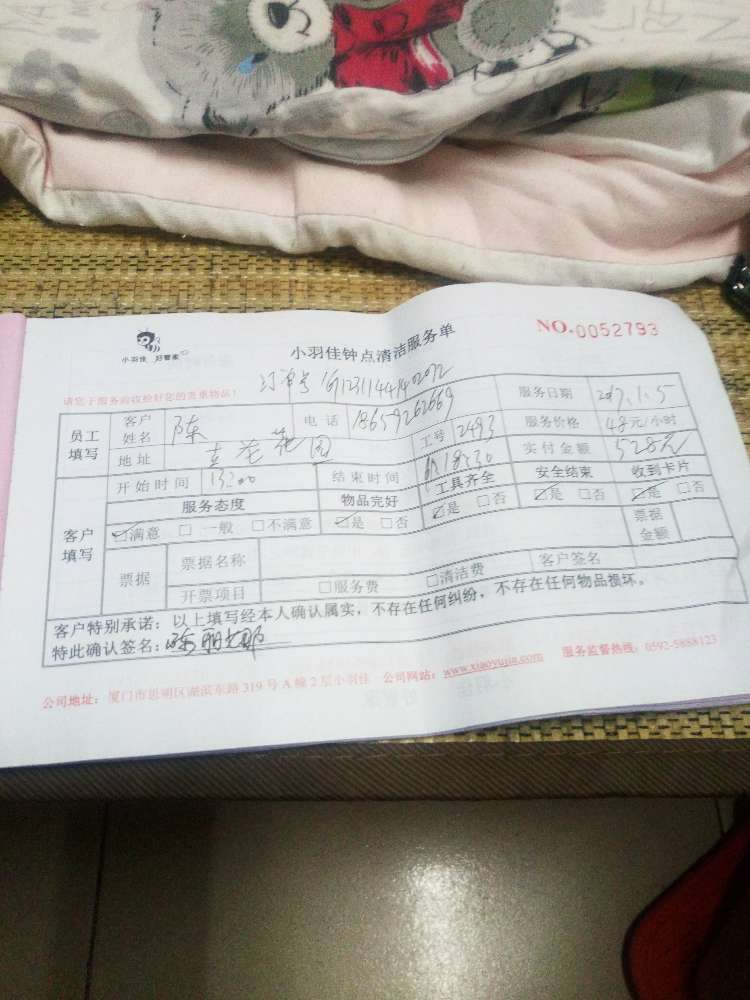 小羽佳 好管家
小羽佳钟点清洁服务单
NO.0052793
请您于服务前收捡好您的贵重物品!
订单号
员工填写 客户姓名 陈 电话 18659262669 服务日期 2017.1.5
地址 花园 工号 2493 服务价格 48元/小时
开始时间 13:00 结束时间 18:30 实付金额 528元
客户填写 服务态度 物品完好 工具齐全 安全结束 收到卡片
☑满意 □一般 □不满意 ☑是 □否 ☑是 □否 ☑是 □否 ☑是 □否
票据 票据名称 票据金额
开票项目 □服务费 □清洁费 客户签名
客户特别承诺:以上填写经本人确认属实,不存在任何纠纷,不存在任何物品损坏。
特此确认签名:
公司地址:厦门市思明区湖滨东路319号A幢2层小羽佳 公司网站:www.xiaoyujia.com 服务监督热线:0592-5888123